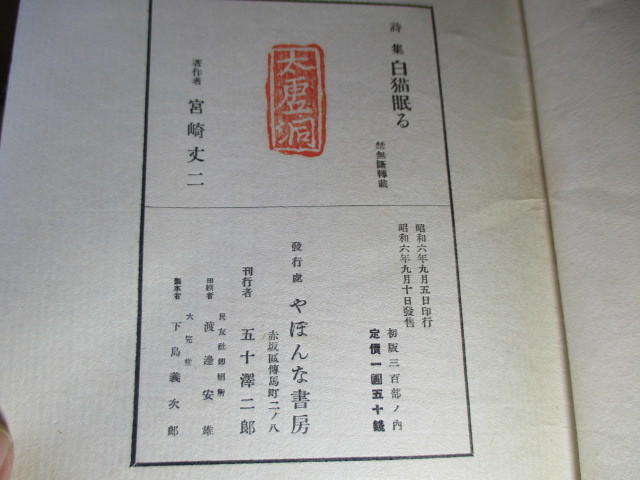 詩集 白猫眠る
禁無断轉載
太虚洞
著作者 宮崎丈二
昭和六年九月五日印行
昭和六年九月十日發售
初版三百部ノ內
定價一圓五十錢
發行處 やぽんな書房
赤坂區傳馬町二ノ八
刊行者 五十澤二郎
民友社印刷所
印刷者 渡邊安雄
製本者 下島義次郎